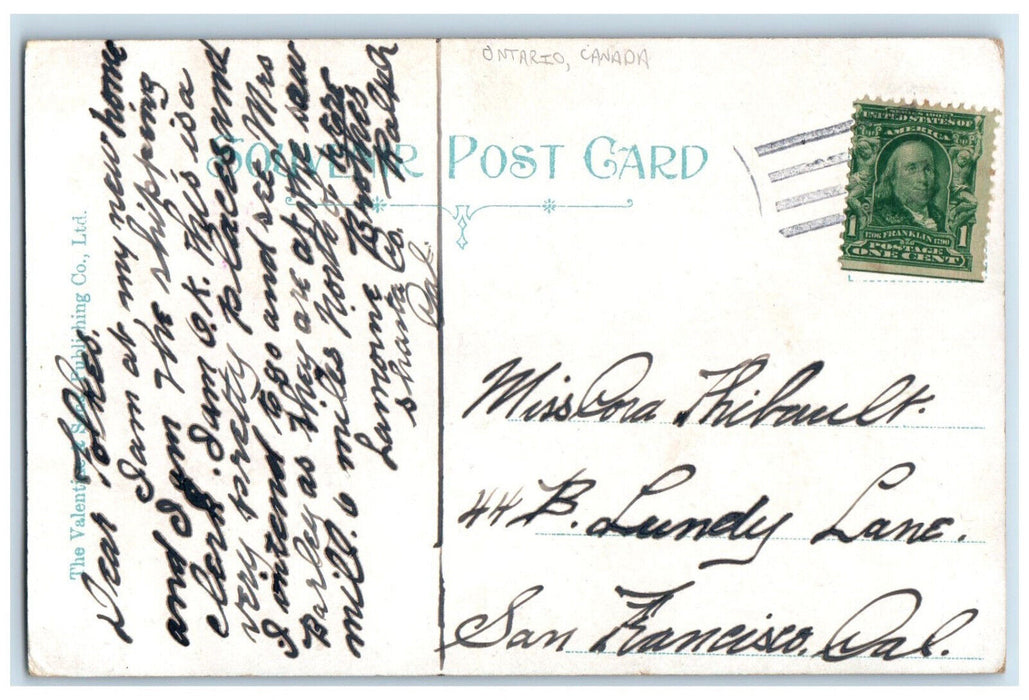 ONTARIO, CANADA
SOUVENIR POST CARD
The Valentine & Sons Publishing Co., Ltd.
Dear Folkes.
I am at my new home
and I am the shipping
clerk. I am O.K. this is a
very pretty place and
I intend to go and see Mrs
Barley as they are at the saw
mill. 6 miles north of here
Lamoine
Shasta Co.
Cal.
UNITED STATES OF
AMERICA
1706 FRANKLIN 1790
POSTAGE
1 1
ONE CENT
Miss Cora Thibault.
44 B. Lundy Lane.
San Francisco. Cal.